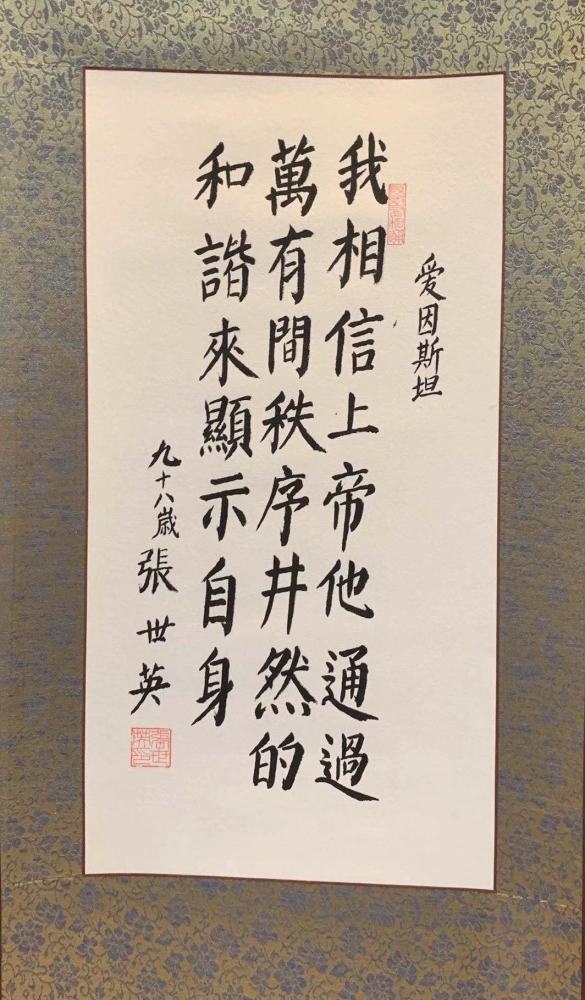 爱因斯坦
我相信上帝他通過
萬有間秩序井然的
和諧來顯示自身
九十八歲張世英